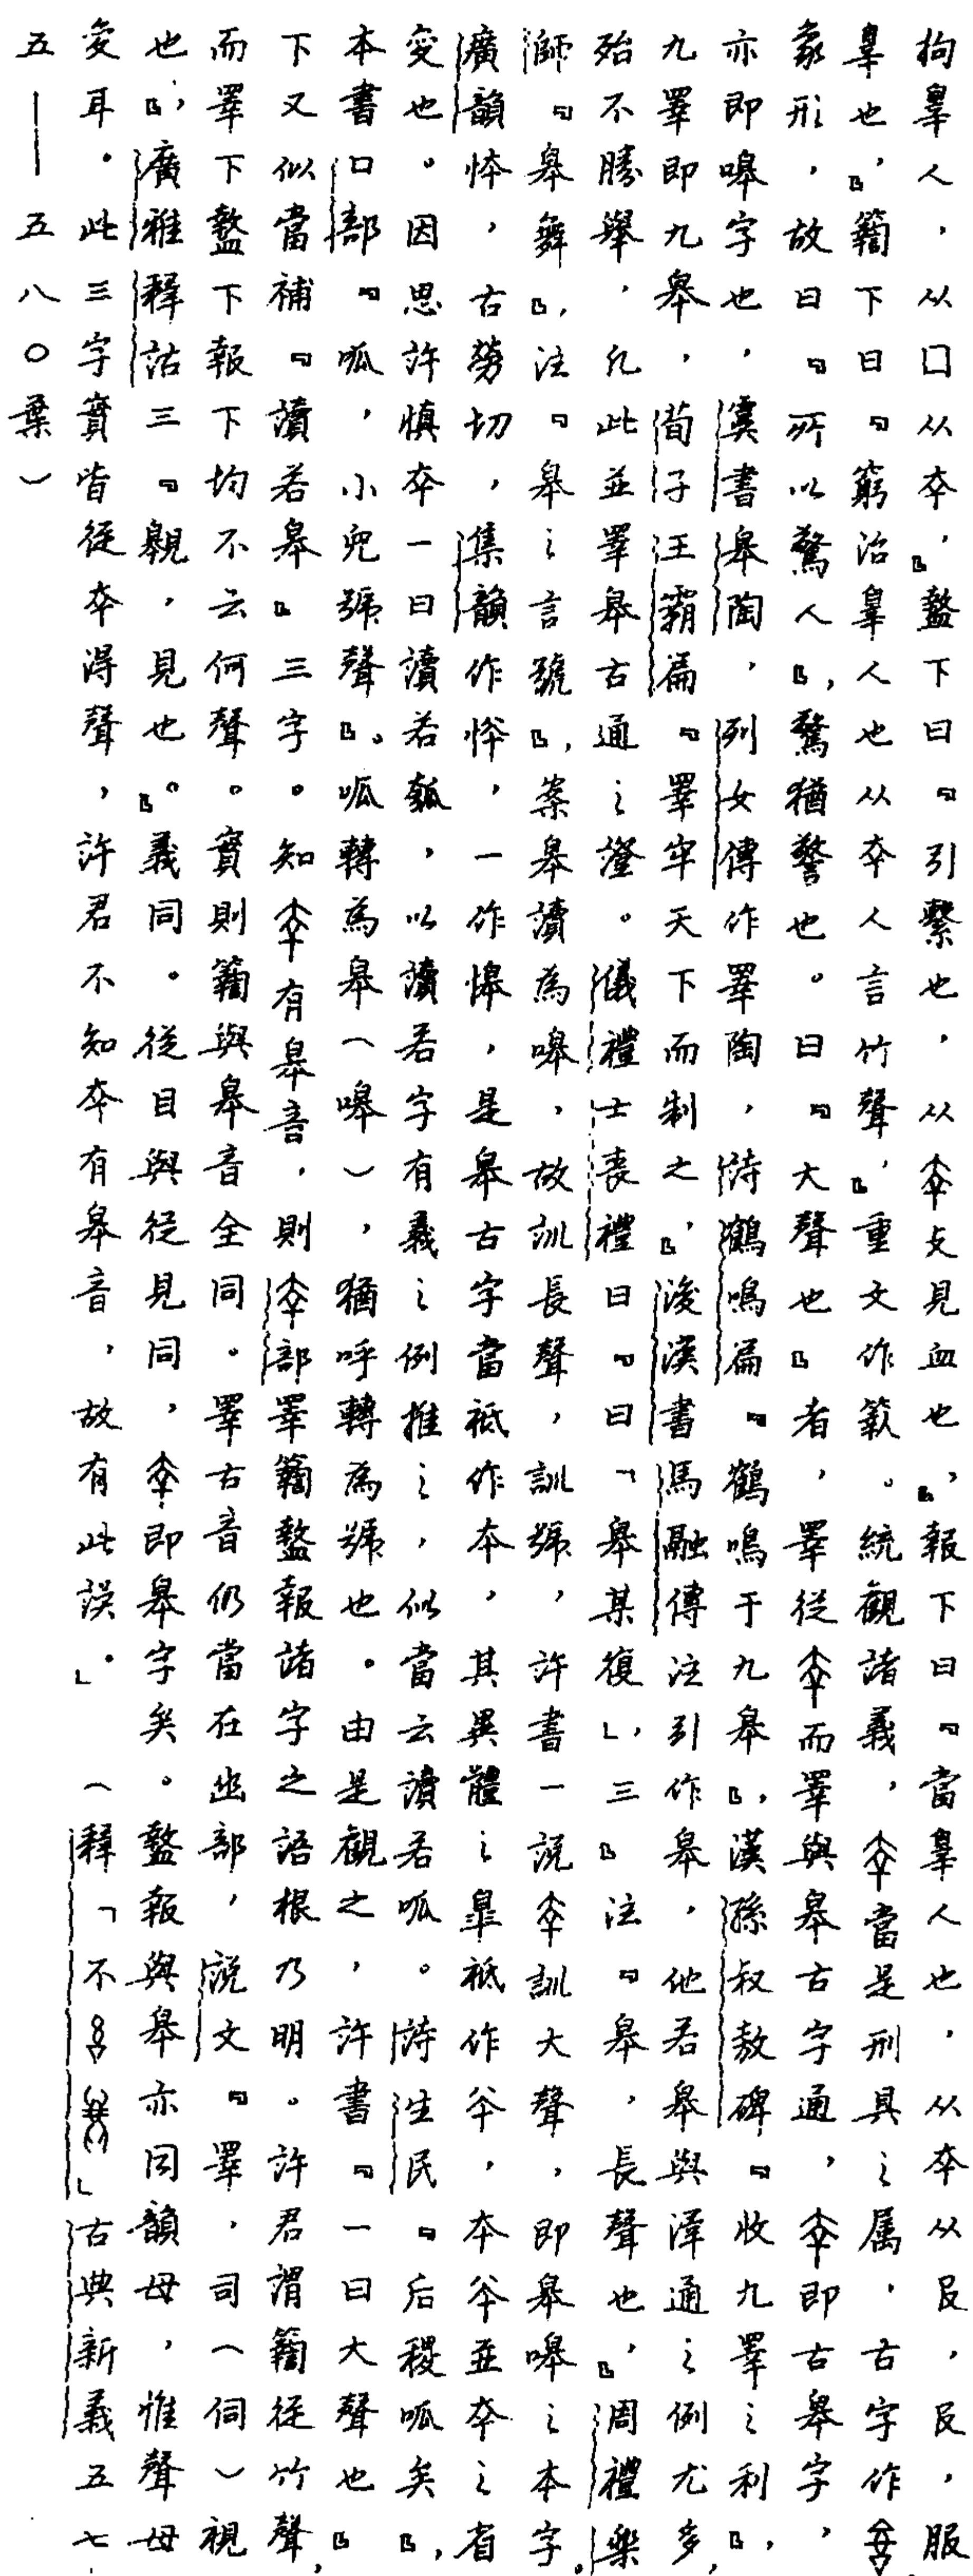 拘辠人，从囗从㚔』，盩下曰『引繫也，从㚔攴見血也』，報下曰『當辠人也，从㚔从𠬝，𠬝，服
辠也』，籋下曰『窮治辠人也从㚔人言竹聲』，重文作䉤。統觀諸義，㚔當是刑具之屬，古字作
象形，故曰『所以驚人』，驚猶警也。曰『大聲也』者，睪從㚔而睪與皋古字通，㚔即古皋字，
亦即嗥字也，虞書皋陶，列女傳作睪陶，詩鶴鳴篇『鶴鳴于九皋』，漢孫叔敖碑『收九睪之利』，
九睪即九皋，荀子王霸篇『睪牢天下而制之』，後漢書馬融傳注引作皋，他若皋與澤通之例尤多，
殆不勝舉，凡此並睪皋古通之證。儀禮士喪禮曰『曰「皋某復」，三』注『皋，長聲也』，周禮樂
師『皋舞』，注『皋之言號』，案皋讀為嗥，故訓長聲，訓號，許書一說㚔訓大聲，即皋嗥之本字。
廣韻㤓，古勞切，集韻作㤓，一作㟸，是皋古字當祇作夲，其異體之皐祇作㚏，夲㚏並㚔之省
變也。因思許慎㚔一曰讀若瓠，以讀若字有義之例推之，似當云讀若呱。詩生民『后稷呱矣』，
本書口部『呱，小兒號聲』。呱轉為皋（嗥），猶呼轉為號也。由是觀之，許書『一曰大聲也』
下又似當補『讀若皋』三字。知㚔有皋音，則㚔部睪籋盩報諸字之語根乃明。許君謂籋從竹聲，
而睪下盩下報下均不云何聲。實則籋與皋音全同。睪古音仍當在幽部，說文『睪，司（伺）視
也』，廣雅釋詁三『䚕，見也』。義同。從目與從見同，㚔即皋字矣。盩報與皋亦同韻母，惟聲母
变耳。此三字實皆從㚔得聲，許君不知㚔有皋音，故有此誤。」（釋「不」古典新義五七
五——五八〇葉）